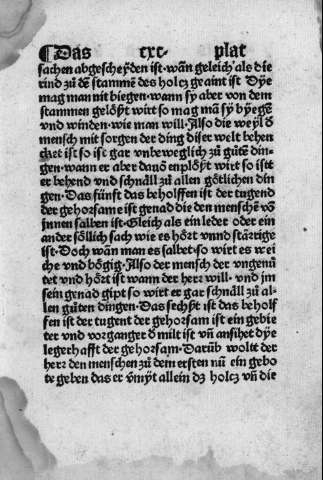 ¶Das cxc- plat
sachen abgescheyden ist·wañ geleich als die
rind zů dē stammē des holcz geaint ist Dye
mag man nit biegen·wann sy aber von dem
stammen gelößt wirt so mag mā sy byegē
vnd winden·wie man will·Also die weyl ð
mensch mit sorgen der ding diser welt behen
cket ist so ist gar vnbeweglich zů gůtē din-
gen·wann er aber dauō enplößt wirt so istt
er behend vnd schnåll zů allen götlichen din
gen·Das fünft das beholffen ist der tugend
der gehorsame ist genad die den menschē vō
jnnen salben ist·Gleich als ein leder oder ein
ander söllich sach wie es hört vnnd stårrige
ist·Doch wañ man es salbet·so wirt es wei
che vnd bögig·Also der mensch der vngenü
tet vnd hört ist wann der herr will·vnd jm
sein genad gipt so wirt er gar schnåll zů al-
len gůten dingen·Das sechßt ist das behol
fen ist der tugent der gehorsam ist ein gebie
ter vnd vorganger ð milt ist vñ ansihet dye
legerhafft der gehorsam·Darūb wollt der
herr den menschen zů dem ersten nū ein gebo
te geben das er vmyt allein dz holcz vñ die